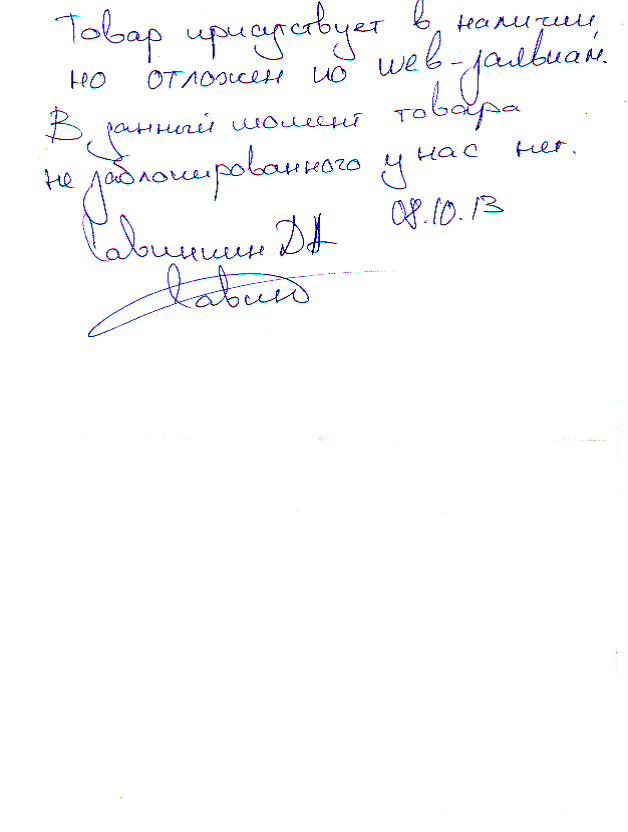 Товар присутствует в наличии,
но отложен по web-заявкам.
В данный момент товара
не заблокированного у нас нет.
08.10.13
Савинкин ДА